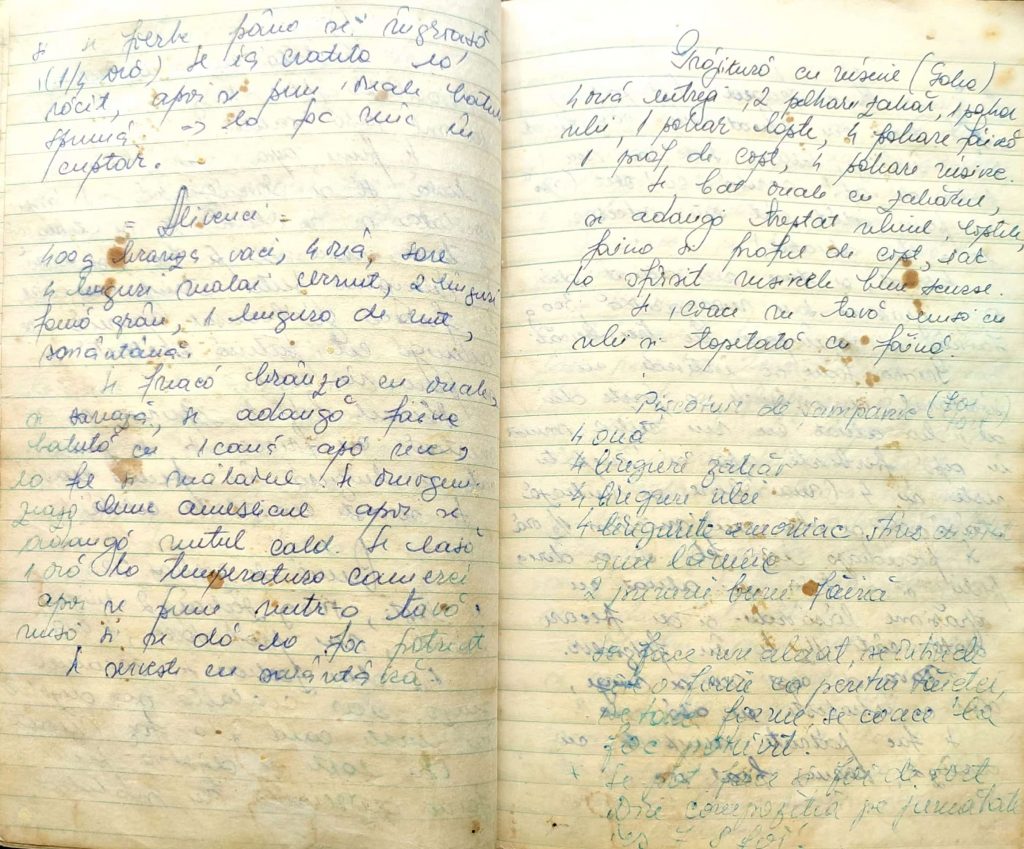 și se fierbe până se îngroașă
(1/4 oră) Se ia cratița la
răcit, apoi se pun ouale bătute
spumă → la foc mic în
cuptor.
= Alivenci =
400g branza vaci, 4 ouă, sare
4 linguri malai cernut, 2 linguri
faină grâu, 1 lingura de unt,
smântână.
Se freacă brânza cu ouale,
se adaugă făina
batută cu 1 cană apă rece,
la fel si mălaiul. Se omogeni-
zează bine amestecul apoi se
adaugă untul cald. Se lasă
1 oră la temperatura camerei
apoi se pune intr-o tavă
unsă si se dă la foc potrivit
Se serveste cu smântână.
Prăjitură cu visine (Saha)
4 ouă intregi, 2 pahare zahăr, 1 pahar
ulei, 1 pahar lapte, 4 pahare făină
1 praf de copt, 4 pahare visine.
Se bat ouale cu zahărul,
se adaugă treptat uleiul, laptele,
faina si praful de copt, iar
la sfirsit visinele bine scurse.
Se coace in tavă unsă cu
ulei si tapetată cu făină.
Piscoturi de sampanie
4 ouă
4 linguri zahăr
4 linguri ulei
4 lingurite amoniac stins cu
lămâie
2 pahare bune făină
se face un aluat, se intinde
o foaie ca pentru tăietei,
se taie forme, se coace la
foc potrivit.
+ Se pot face si foi de tort
Din compozitia pe jumătate
ies 7-8 foi.